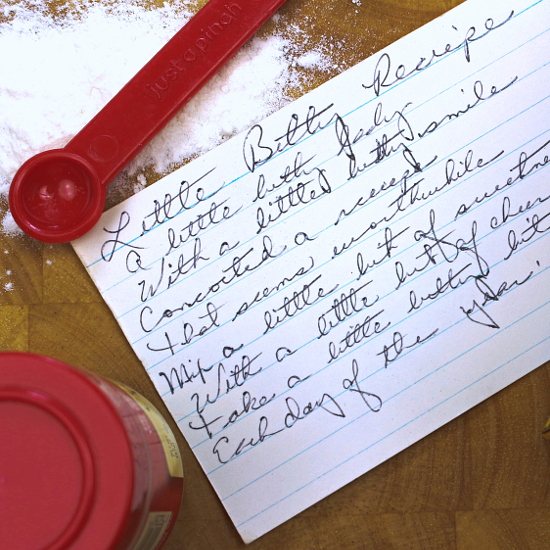 just a pinch
Little Bitty Recipe
A little bitty lady
With a little bitty smile
Concocted a receipt
That seems worthwhile
Mix a little bit of sweetness
With a little bit of cheer
Take a little bitty bit
Each day of the year.